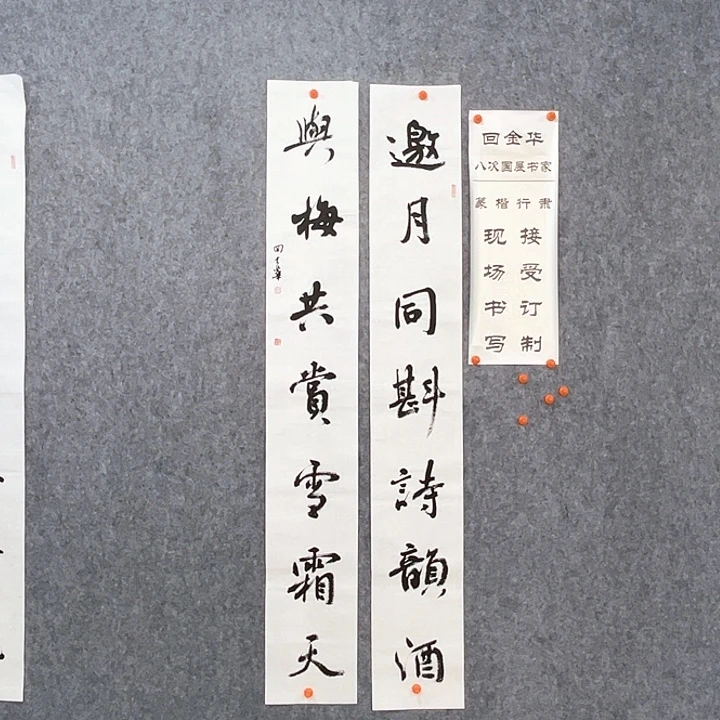 邀月同斟詩韻酒
與梅共賞雪霜天
回金华
八次国展书家
篆楷行隶
接受订制
现场书写